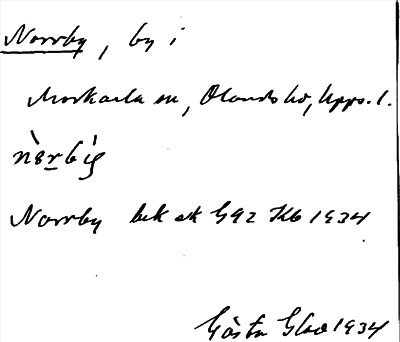 Norrby, by i
Morkarla sn, Olands hd, Upps. l.
Norrby bek sk G92 Kb 1934
Gösta Glad 1934